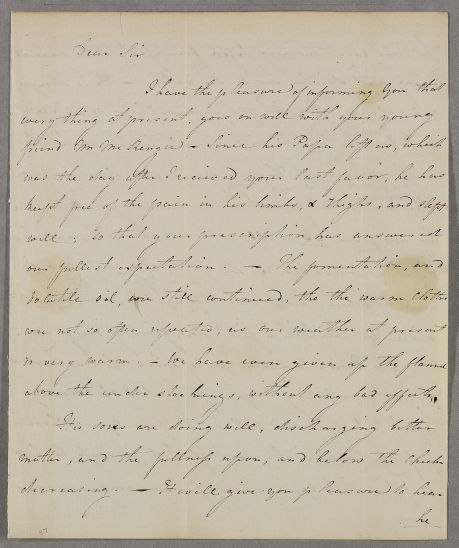 Dear Sir
I have the pleasure of informing you that
every thing at present, goes on well with your young
friend Mr McKenzie – Since his Papa left us, which
was the day after I received your last favor, he has
kept free of the pain in his limbs, & thighs, and slept
well; so that your prescription, has answered
our fullest expectation. — The fomentation, and
Volatile oil, are still continued, tho the warm cloths
are not so often repeated, as our weather at present
is very warm. – We have even given up the flannel
above the under stockings, without any bad effects.
His sores are doing well, discharging better
matter, and the fullness upon, and below the
decreasing. — It will give you pleasure to hear
he